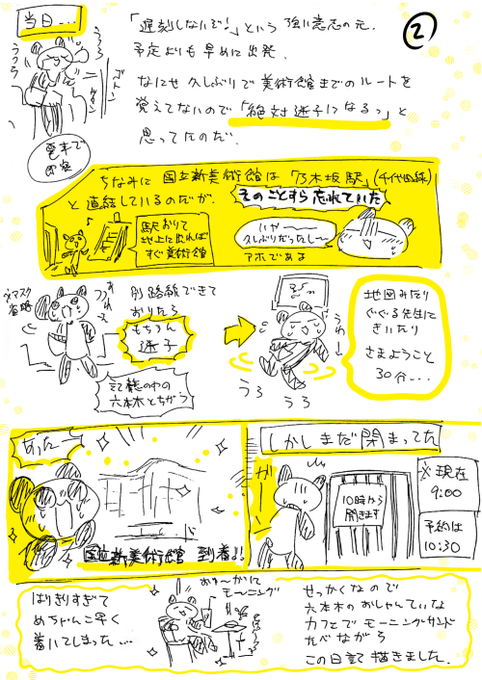 ②
当日…
「遅刻しないぞ!」という強い意志の元、
予定よりも早めに出発。
なにせ久しぶりで美術館までのルートを
覚えてないので「絶対迷子になるっ」と
思ってたのだ。
うろ
うつら
ガタン
ゴトン
電車で
ちなみに国立新美術館は「乃木坂駅」(千代田線)
と直結しているのだが、
そのことすら忘れていた
駅おりて
地上に出れば
すぐ美術館
いやー
久しぶりだったしー
アホである
※マスク
省略
あれえ
別路線できて
おりたら
もちろん
迷子
記憶の中の
六本木とちがう
うわー
うろ
うろ
地図みたり
ぐぐる先生に
きいたり
さまようこと
30分…
あったー
国立新美術館 到着!!
しかしまだ閉まってた
ガーン
10時から
開きます
※現在
9:00
予約は
10:30
はりきりすぎて
めちゃんこ早く
着いてしまった…
おゆーがに
モーニング
せっかくなので
六本木のおしゃんてぃな
カフェでモーニングサンド
たべながら
この日記描きました。